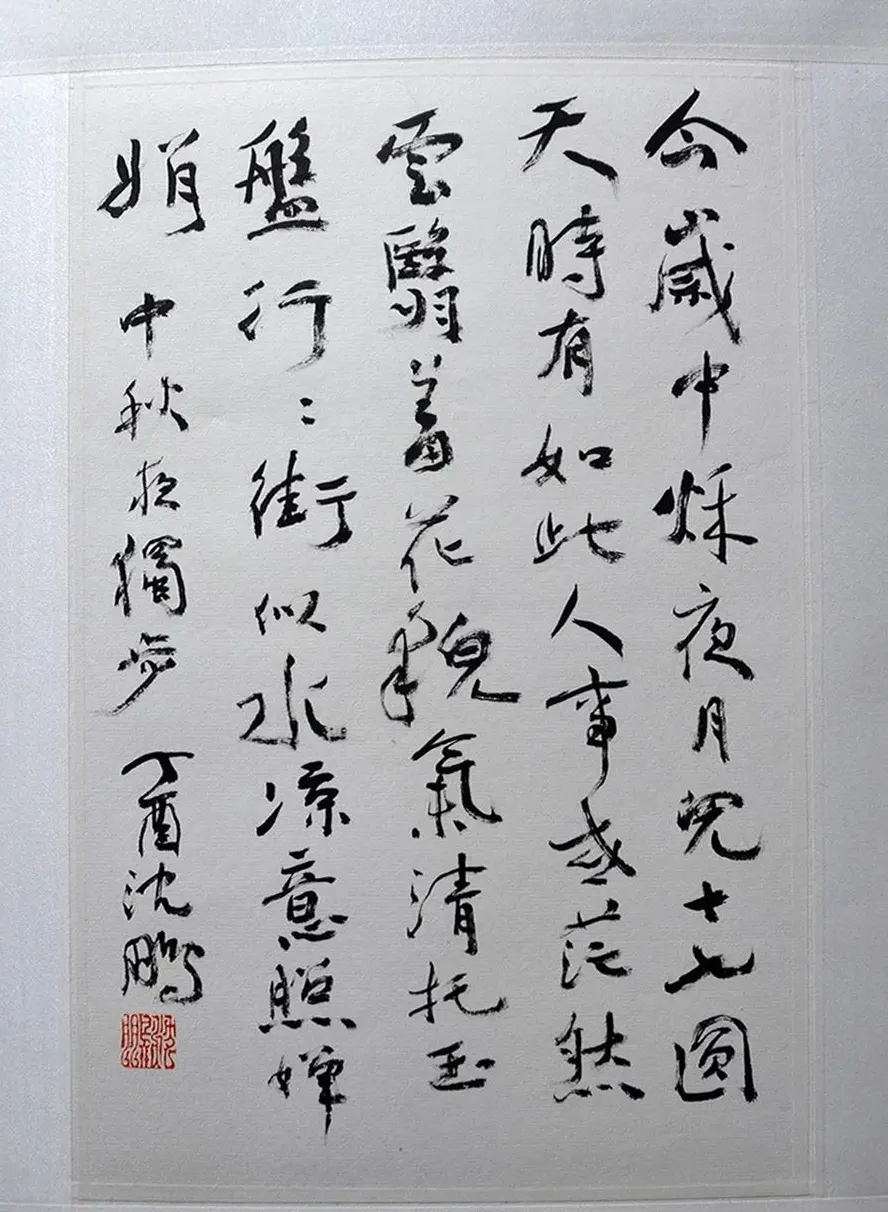 今歲中秌夜月兒十七圓
天時有如此人事或茫然
雲翳羞花貌氣清托玉
盤行〻街似水凉意照嬋
娟 中秋夜獨步 丁酉沈鵬